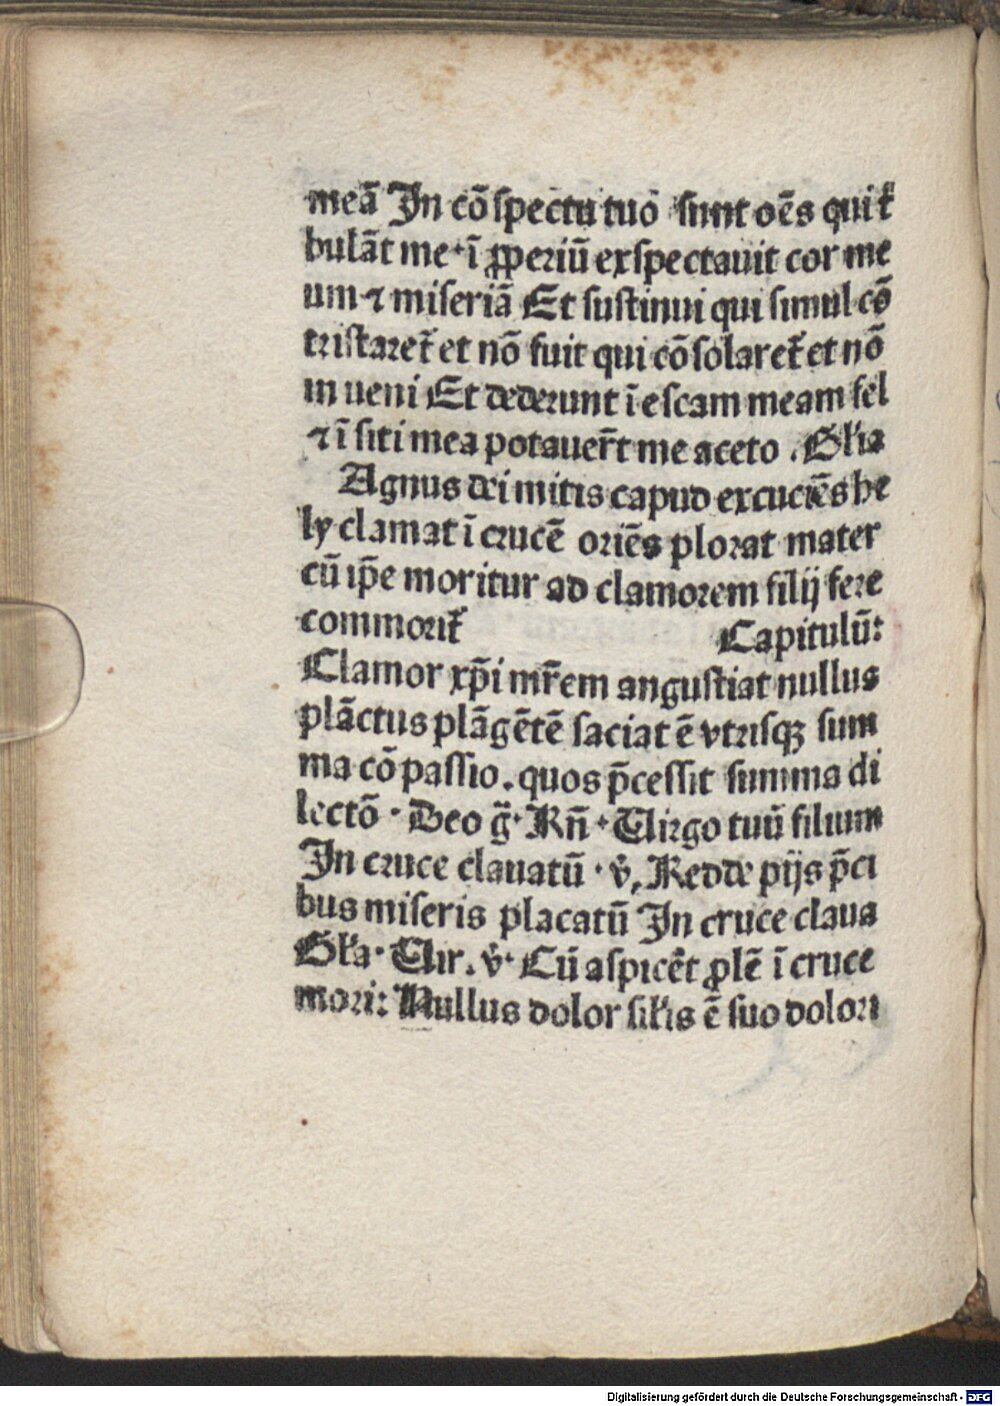 meā In cōspectu tuo sunt oēs quit᷑
bulāt me · ī ꝓꝑeriū exspectauit cor me
um ⁊ miseriā Et sustinui qui simul cō
tristaret᷑ et nō fuit qui cōsolaret᷑ et nō
in ueni Et dederunt ī escam meam fel
⁊ ī siti mea potauer̄t me aceto . Gl'ia
Agnus dei mitis capud excuciēs he
ly clamat ī crucē oriēs plorat mater
cū ip̄e moritur ad clamorem filij fere
commorit᷑ Capitulū:
Clamor xp̄i mr̄em angustiat nullus
plāctus plāgētē saciat ē vtrisqꝫ sum
ma cōpassio . quos p̄cessit summa di
lectō · Deo ḡ· Rn̄ · Uirgo tuū filium
In cruce clauatū · v̓, Redde pijs p̄ci
bus miseris placatū In cruce claua
Gl'a · Uir . v̓· Cū aspicēt ꝓlē ī cruce
mori: Nullus dolor sil'is ē suo dolori
Digitalisierung gefördert durch die Deutsche Forschungsgemeinschaft - DFG